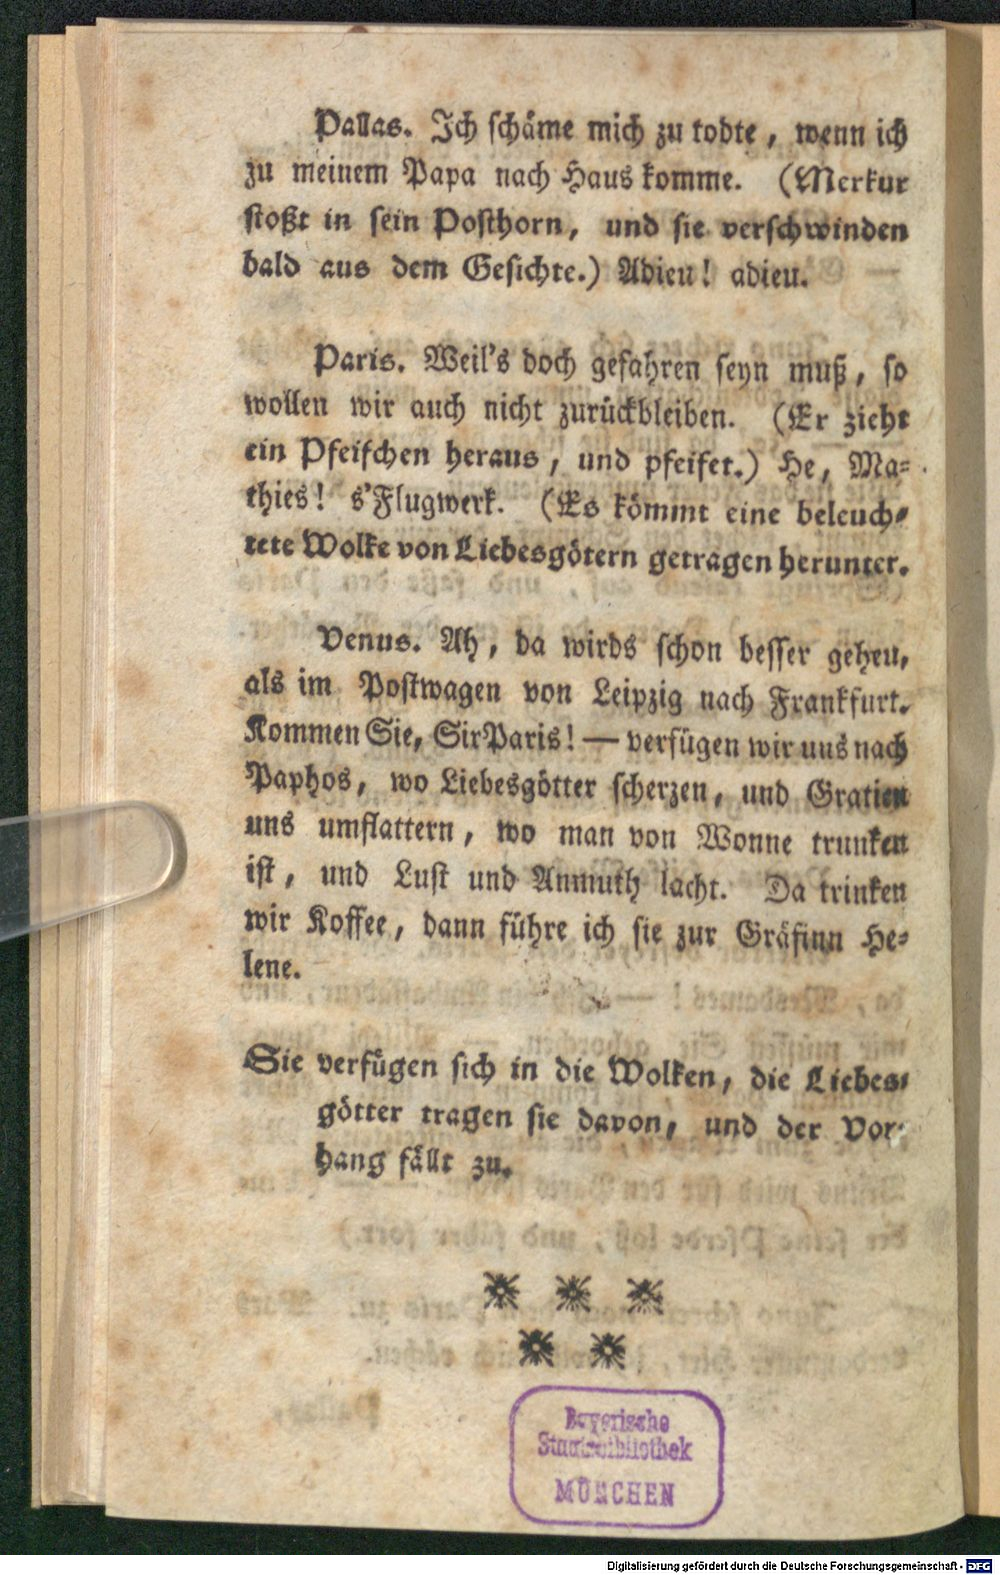 Pallas. Ich schäme mich zu todte, wenn ich
zu meinem Papa nach Haus komme. (Merkur
stoßt in sein Posthorn, und sie verschwinden
bald aus dem Gesichte.) Adieu! adieu.
Paris. Weil's doch gefahren seyn muß, so
wollen wir auch nicht zurückbleiben. (Er zieht
ein Pfeifchen heraus, und pfeifet.) He, Ma-
thies! s'Flugwerk. (Es kömmt eine beleuch-
tete Wolke von Liebesgötern getragen herunter.
Venus. Ah, da wirds schon besser gehen,
als im Postwagen von Leipzig nach Frankfurt.
Kommen Sie, Sir Paris! — verfügen wir uns nach
Paphos, wo Liebesgötter scherzen, und Gratien
uns umflattern, wo man von Wonne trunken
ist, und Lust und Anmuth lacht. Da trinken
wir Koffee, dann führe ich sie zur Gräfinn He-
lene.
Sie verfügen sich in die Wolken, die Liebes-
götter tragen sie davon, und der Vor-
hang fällt zu.
Bayerische
Staatsbibliothek
MÜNCHEN
Digitalisierung gefördert durch die Deutsche Forschungsgemeinschaft - DFG